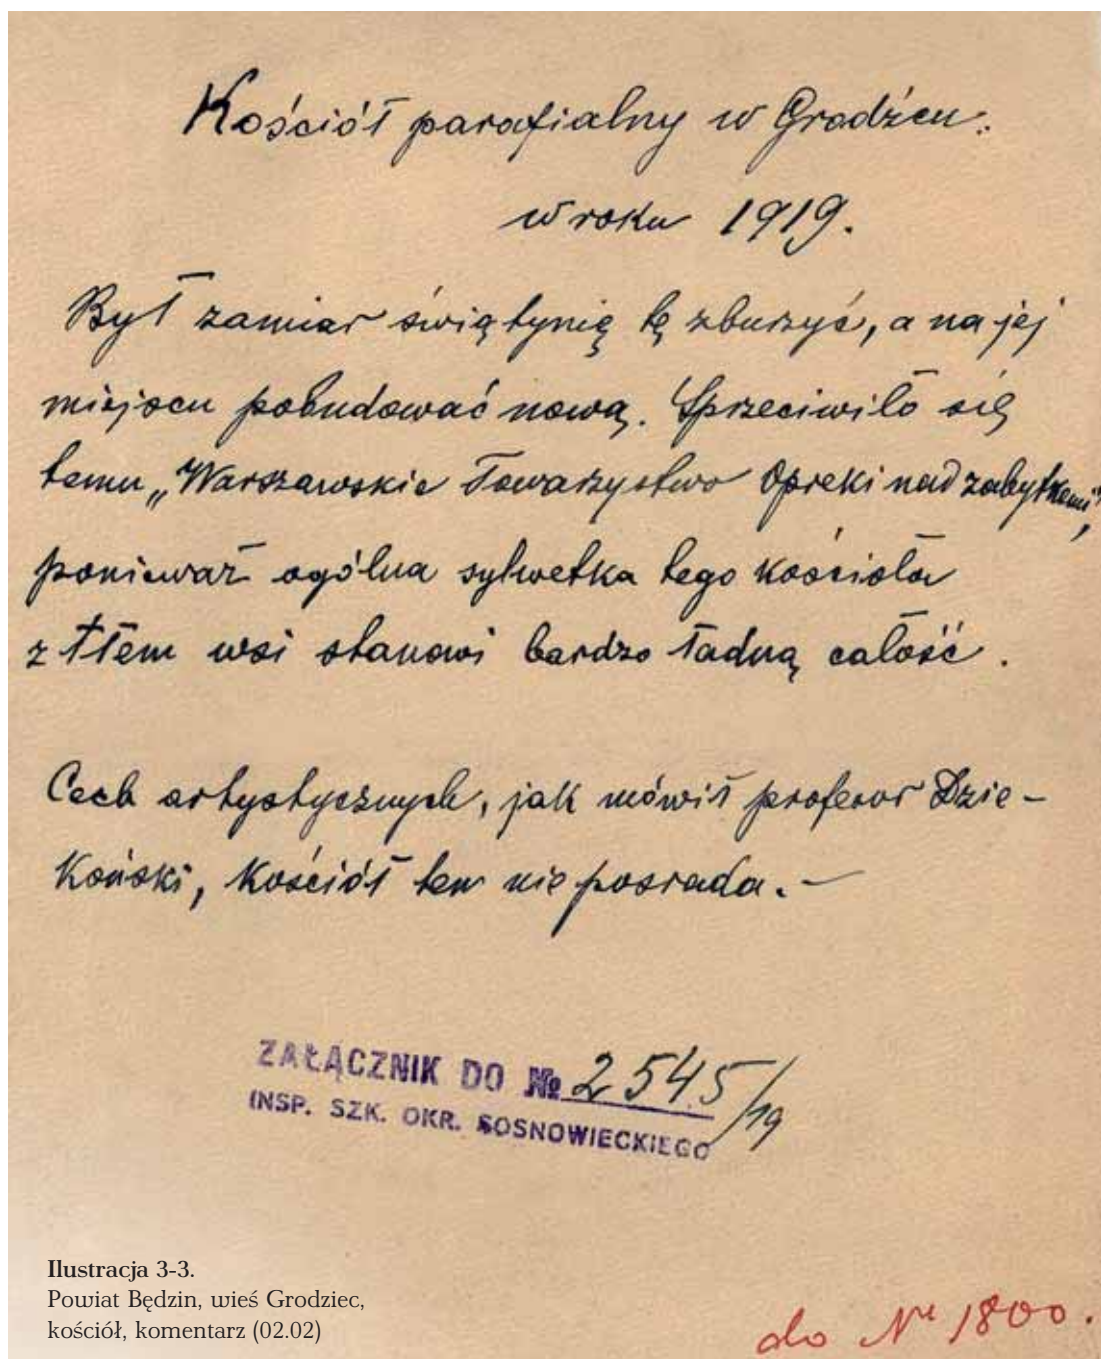 Kościół parafialny w Grodźcu.
w roku 1919.
Był zamiar świątynię tę zburzyć, a na jej
miejscu pobudować nową. Sprzeciwiło się
temu „Warszawskie Towarzystwo Opieki nad zabytkami”,
ponieważ ogólna sylwetka tego kościoła
z tłem wsi stanowi bardzo ładną całość.
Cech artystycznych, jak mówił profesor Dzie-
koński, kościół ten nie posiada.—
ZAŁĄCZNIK DO № 2545/19
INSP. SZK. OKR. SOSNOWIECKIEGO
Ilustracja 3-3.
Powiat Będzin, wieś Grodziec,
kościół, komentarz (02.02)
do № 1800.